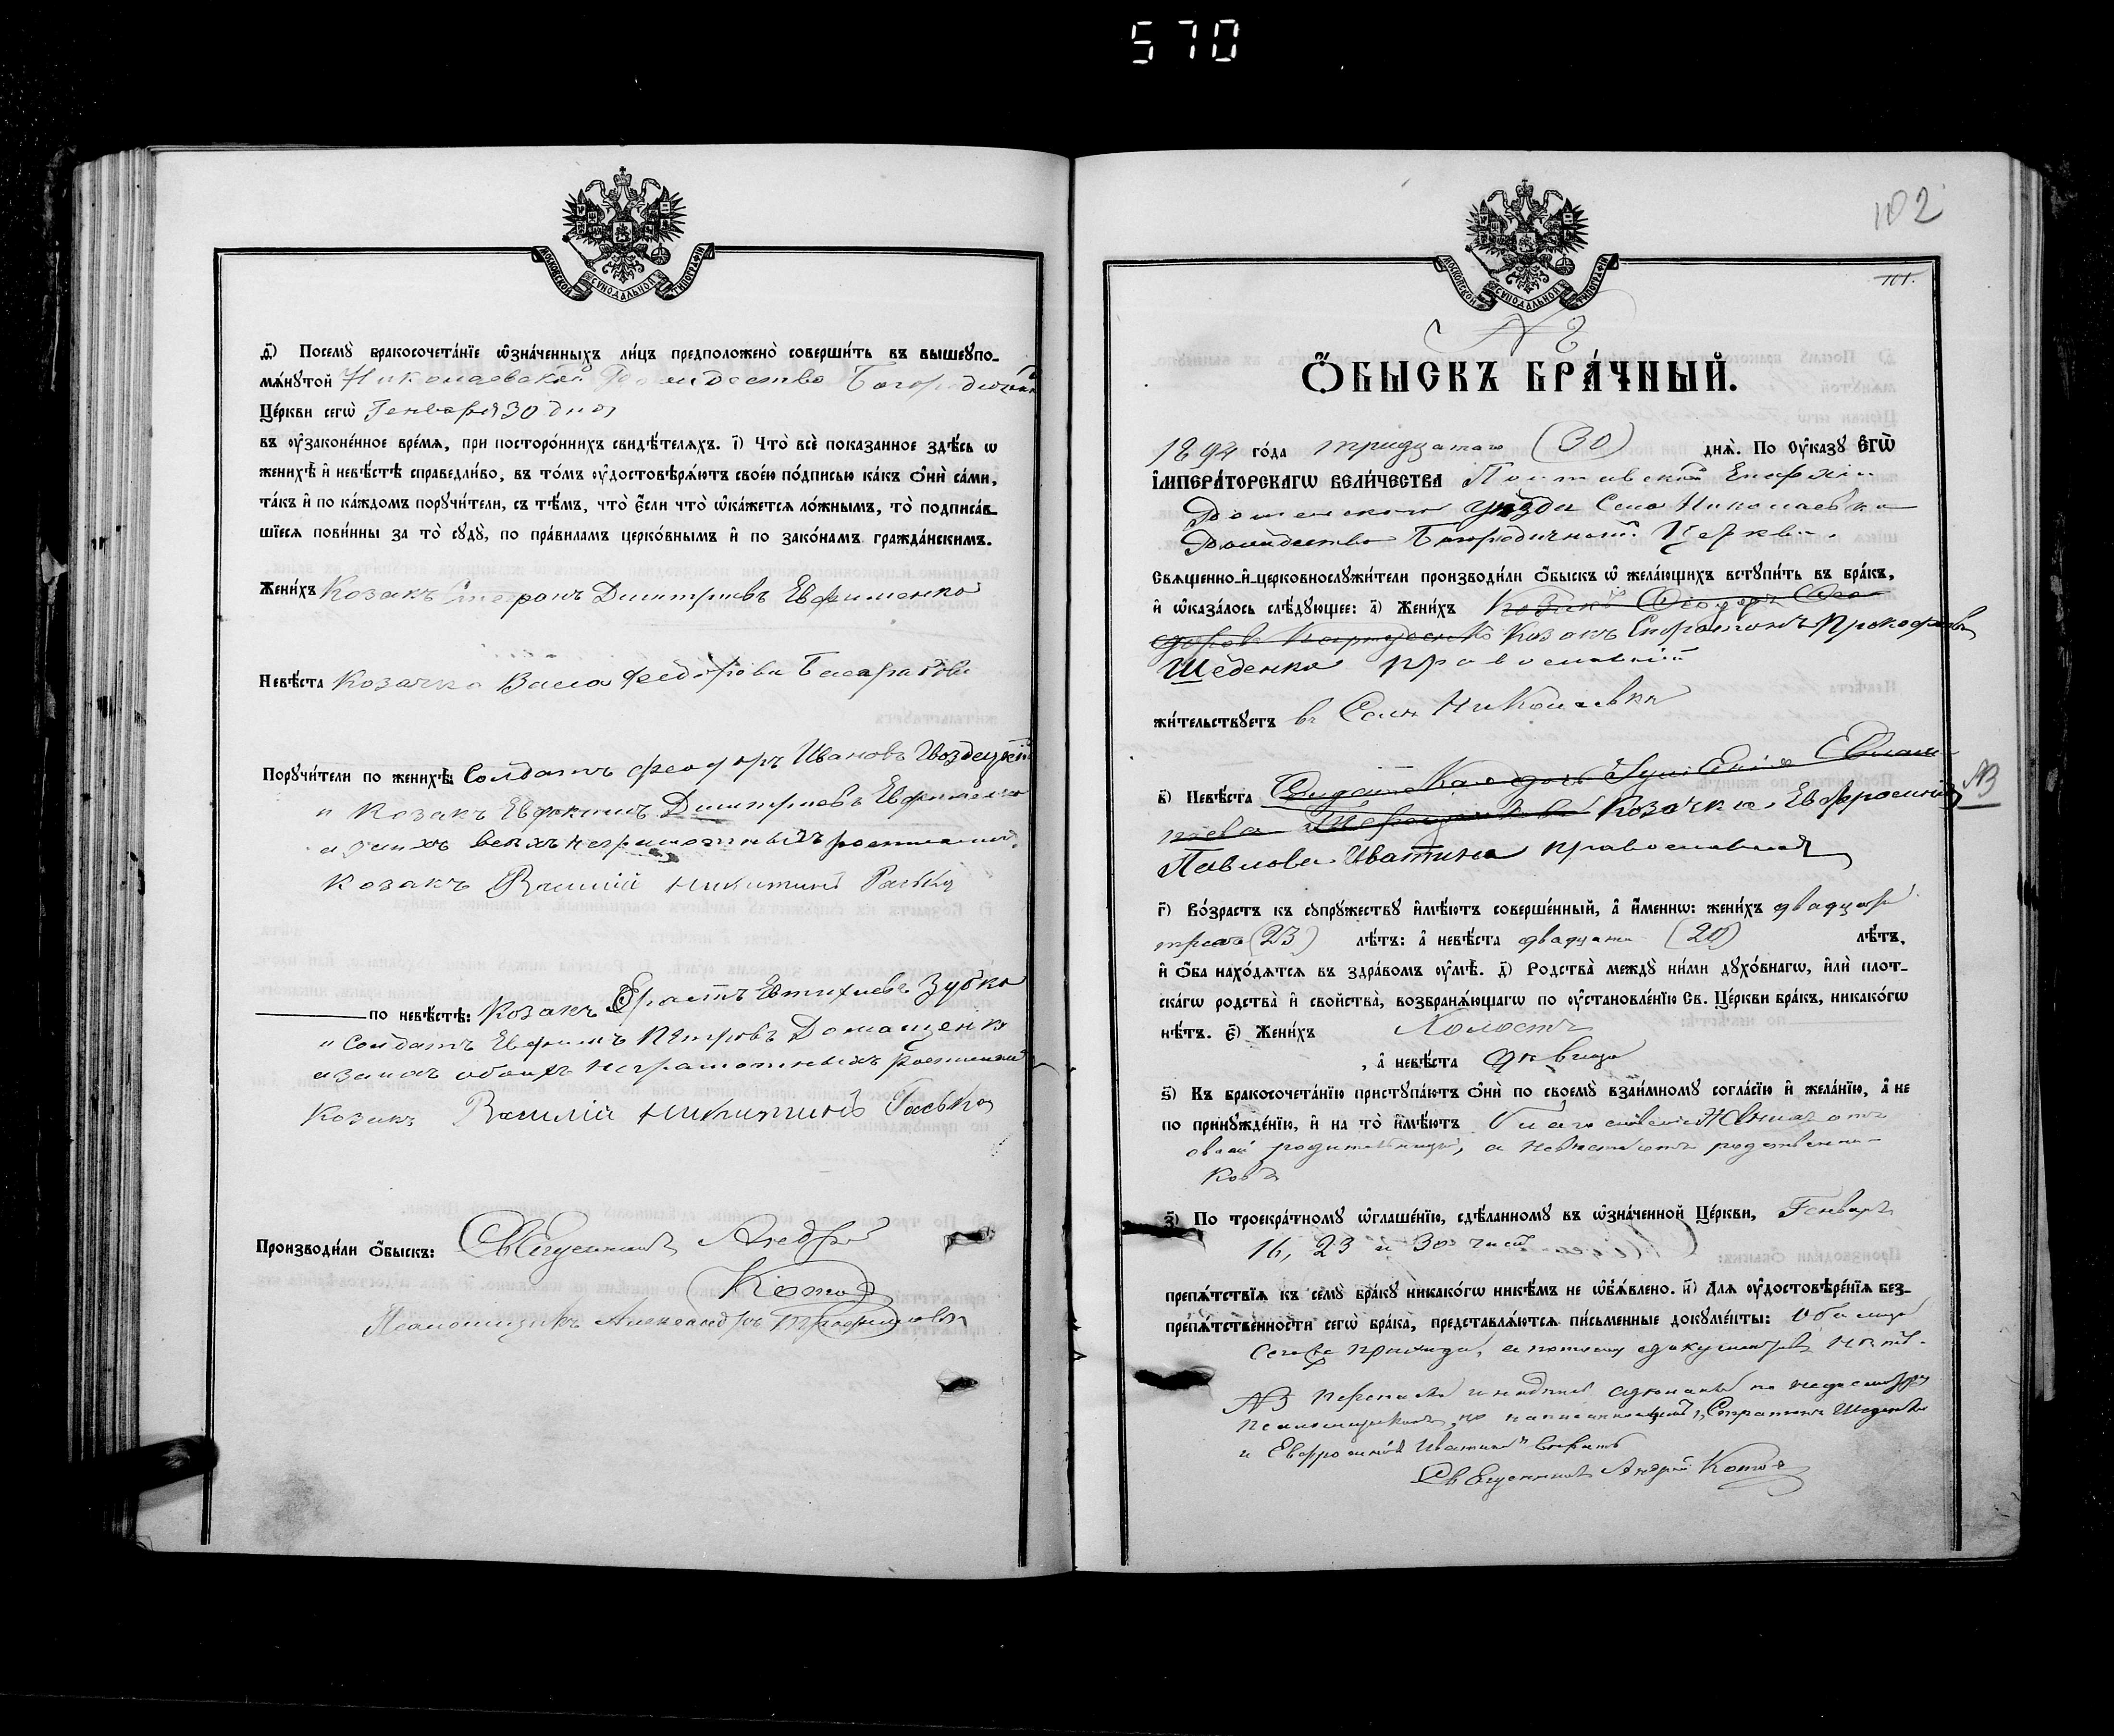 570
МОСКОВСКОЙ СѴНОДАЛЬНОЙ ТИПОГРАФІИ
д҃) Посемꙋ̀ бракосочета́нїе ѡ҆зна́ченныхъ ли́цъ предположено̀ соверши́ть въ вышеꙋпо-
мѧ́нꙋтой Николаевской Рождество Богородичной
Це́ркви сегѡ̀ Генваря 30 дня
въ ᲂу҆законе́нное вре́мѧ, при посторо́ннихъ свидѣ́телѧхъ. і҃) Что̀ всѐ показанное здѣ́сь ѡ
женихѣ̀ и҆ невѣ́стѣ справедли́во, въ то́мъ ᲂу҆достовѣрѧ́ютъ свое́ю по́дписью ка́къ ѻ҆нѝ са́ми,
та́къ и҆ по ка́ждомъ порꙋчи́тели, съ тѣ́мъ, что̀ є҆́сли что̀ ѡ҆ка́жется ло́жнымъ, то̀ подписа́в-
шїеся пови́нны за то̀ сꙋдꙋ̀, по пра́виламъ церко́внымъ и҆ по зако́намъ гражда́нскимъ.
Жени́хъ Козакъ Димитріевъ Евфименко
Невѣ́ста Козачка Васса Федорова
Порꙋчи́тели по женихѣ̀: Солдатъ Феодоръ Ивановъ Гвоздецкій
и Козакъ Евфимъ Димитріевъ Евфименко
а за нихъ всѣхъ неграмотныхъ
Козакъ Василій Никитинъ Раська
по невѣ́стѣ: Козакъ Ерастъ Евтихіевъ Зубко
и Солдатъ Евфимъ Петровъ Домащенко
а за нихъ обоихъ неграмотныхъ росписался
Козакъ Василій Никитинъ Раська
Производи́ли ѻ҆́быскъ: Священникъ Андрей
Котовъ
Псаломщикъ Александръ Трофимовъ
102
101.
МОСКОВСКОЙ СѴНОДАЛЬНОЙ ТИПОГРАФІИ
№
Ѻ҆́БЫСКЪ БРА́ЧНЫЙ.
1894 го́да тридцатаго (30) днѧ̀. По ᲂу҆казꙋ Є҆ГѠ̀
І҆МПЕРА́ТОРСКАГѠ ВЕЛИ́ЧЕСТВА Полтавской Епархіи
Роменскаго уѣзда Села Николаевки
Рождество Богородичной Церкви.
Свѧщенно-и҆-церковнослꙋжи́тели производи́ли ѻ҆́быскъ ѡ҆ жела́ющихъ встꙋпи́ть въ бра́къ,
и҆ ѡ҆каза́лось слѣ́дꙋющее: а҃) Жени́хъ Козакъ Ѳеодоръ Ѳео
доровъ Козакъ Стратонъ Прокофіевъ
Шеденко православный
жи́тельствꙋетъ въ Селѣ Николаевкѣ
в҃) Невѣ́ста Солдатская дочь
Козачка Евфросинія NB
Павлова Иватина православная
г҃) Во́зрастъ къ сꙋпрꙋжествꙋ и҆мѣ́ютъ соверше́нный, а҆ и҆́менно: жени́хъ двадцати
трехъ (23) лѣ́тъ: а҆ невѣ́ста двадцати (20) лѣ́тъ,
и҆ ѻ҆́ба нахо́дѧтсѧ въ здра́вомъ ᲂу҆мѣ̀. д҃) Родства̀ междꙋ̀ ни́ми дꙋхо́внагѡ, и҆лѝ плот-
ска́гѡ родства̀ и҆ свойства̀, возбранѧ́ющагѡ по ᲂу҆становле́нїю Св. Це́ркви бра́къ, никако́гѡ
нѣ́тъ. є҃) Жени́хъ Холостъ
, а҆ невѣ́ста дѣвица
ѕ҃) Къ бракосочета́нїю пристꙋпа́ютъ ѻ҆нѝ по своемꙋ̀ взаи́мномꙋ согла́сїю и҆ жела́нїю, а҆ не
по принꙋжде́нїю, и҆ на то̀ и҆мѣ́ютъ благословеніе женихъ отъ
своей родительницы, а невѣста отъ родственни-
ковъ
з҃) По троекра́тномꙋ ѡ҆глаше́нїю, сдѣ́ланномꙋ въ ѡ҆зна́ченной Це́ркви, Генваря
16, 23 и 30 числѣ
препѧ́тствїѧ къ семꙋ̀ бра́кꙋ никако́гѡ никѣ́мъ не ѡ҆б̾ѧ́влено. и҃) Для ᲂу҆достовѣре́нїѧ без-
препѧ́тственности сегѡ̀ бра́ка, представлѧ́ютсѧ пи́сьменные докꙋме́нты: оба лица
сего прихода, а потому документовъ нѣтъ.
NB сдѣланы по недосмотру
псаломщикомъ, но написанному „Стратонъ Шеденко
и Евфросинія Иватина" вѣрить
Священникъ Андрей Котовъ